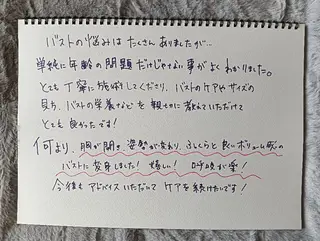 バストの悩みはたくさんありましたが…
単純に年齢の問題だけじゃない事がよくわかりました。
とても丁寧に施術してくださり、バストのケアやサイズの
見方、バストの栄養などを親切に教えていただけて
とても良かったです!
何より、胸が開き姿勢が変わり、ふっくらと良いボリューム感の
バストに変身しました!嬉しい!呼吸が楽!
今後もアドバイスいただいてケアを続けたいです!